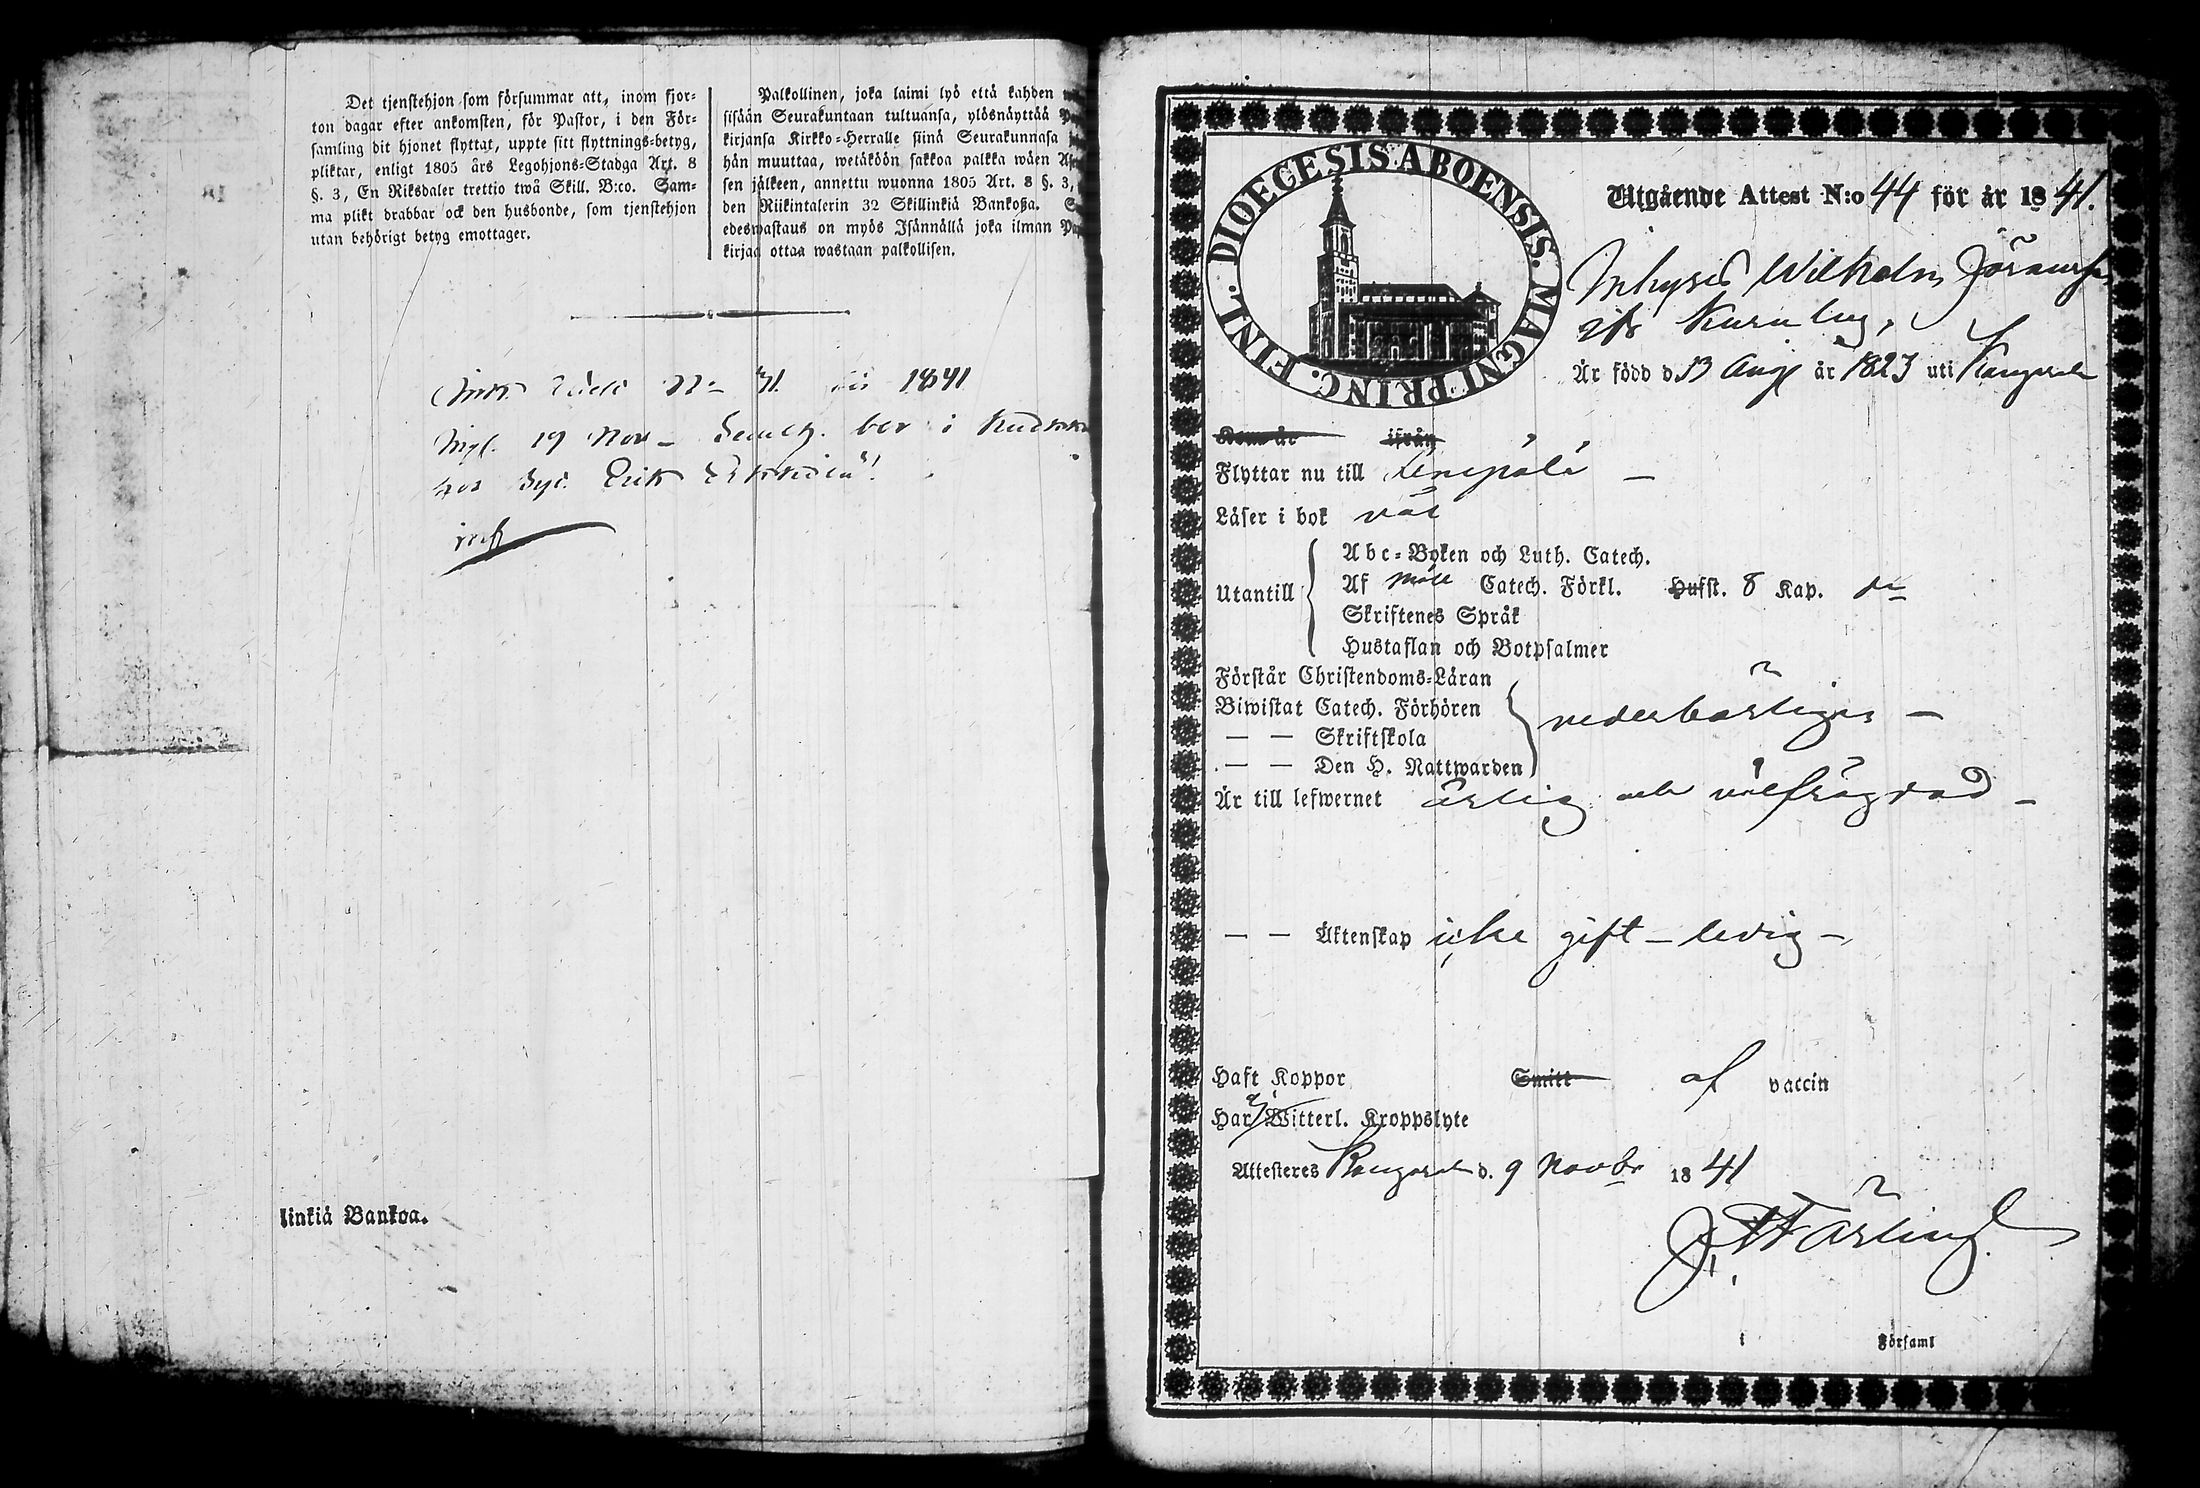 Det tjenstehjon som försummar att, inom fjor=
ton dagar efter ankomsten, för Pastor, i den För=
samling dit hjonet flyttat, uppte sitt flyttnings=betyg,
pliktar, enligt 1805 års Legohjons=Stadga Art. 8
§. 3, En Riksdaler trettio twå Skill. B:co. Sam=
ma plikt drabbar ock den husbonde, som tjenstehjon
utan behörigt betyg emottager.
Palkollinen, joka laimi lyö että kahden
sisään Seurakuntaan tultuansa, ylösnäyttää
kirjansa Kirkko=Herralle siinä Seurakunnasa
hän muuttaa, wetäköön sakkoa palkka wäen
sen jälkeen, annettu wuonna 1805 Art. 8 §. 3,
den Riikintalerin 32 Skillinkiä Bankoßa.
edeswastaus on myös Isännällä joka ilman
kirjaa ottaa wastaan palkollisen.
1841
19 Nov bor i
hos Erik
linkiä Bankoa.
DIOECESIS ABOENSIS. MAGNI PRINC. FINL.
Utgående Attest N:o 44 för år 1841.
Inhyses Wilhelm Göransson
ifr
Är född d 13 Aug år 1823 uti Kangasala
Kom år ifrån
Flyttar nu till Lempälä
Läser i bok väl
Utantill
Abc=Boken och Luth. Catech.
Af Möll Catech. Förkl. Hufst. 8 Kap.
Skriftenes Språk
Hustaflan och Botpsalmer
Förstår Christendoms=Läran
Biwistat Catech. Förhören
— — Skriftskola
— — Den H. Nattwarden
vederbörligen —
Är till lefwernet ärlig och välfrägdad —
— — Äktenskap icke gift — ledig —
Haft Koppor Smitt af vaccin
Har ej Witterl. Kroppslyte
Attesteres Kangasala d. 9 Novbr 1841
i Församl